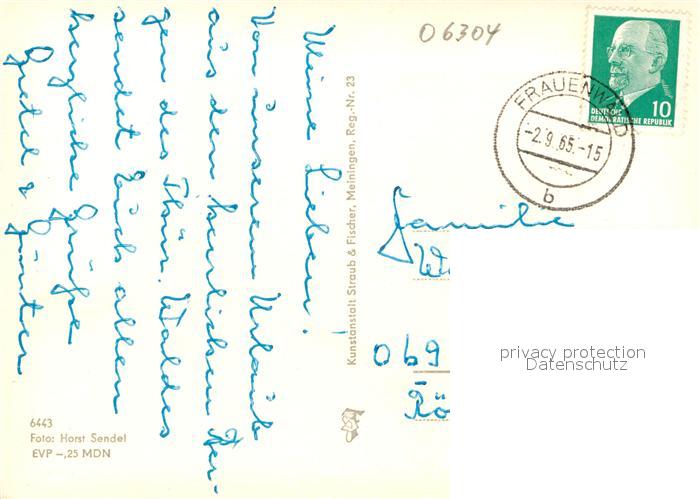 06304
DEUTSCHE
DEMOKRATISCHE REPUBLIK
10
FRAUENWALD
-2.9.65.-15
b
Meine Lieben!
Von unserem Urlaub
aus den herrlichen Ber-
gen des Thür. Waldes
sendet Euch allen
herzliche Grüße
Gretel & Günter
Kunstanstalt Straub & Fischer, Meiningen, Reg.-Nr. 23
Familie
069
privacy protection
Datenschutz
6443
Foto: Horst Sendel
EVP -,25 MDN